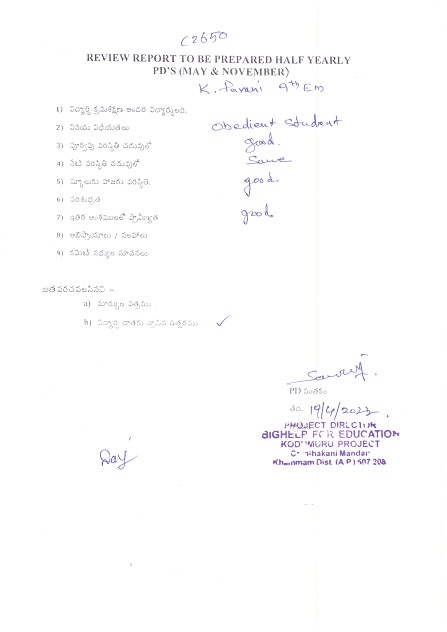 C2650
REVIEW REPORT TO BE PREPARED HALF YEARLY
PD'S (MAY & NOVEMBER)
K. Pavani 9th EM
1) విద్యార్థి క్రమశిక్షణ అందరి విద్యార్థులది.
2) వినయ విధేయతలు Obedient Student
3) పూర్వపు పరిస్థితి చదువులో good.
4) నేటి పరిస్థితి చదువులో Same
5) స్కూలుకు హాజరు పరిస్థితి. good.
6) పరిశుభ్రత
7) ఇతర అంశములలో ప్రావీణ్యత good.
8) అభిప్రాయాలు / సలహాలు
9) కమిటీ సభ్యుల సూచనలు
జతపరచవలసినవి –
a) మార్కుల పత్రము
b) విద్యార్థి దాతకు వ్రాసిన ఉత్తరము ✓
PD సంతకం
తేది. 19/4/2023.
PROJECT DIRECTOR
BIGHELP FOR EDUCATION
KODUMURU PROJECT
Chinthakani Mandal
Khammam Dist. (A.P) 507 208
Day